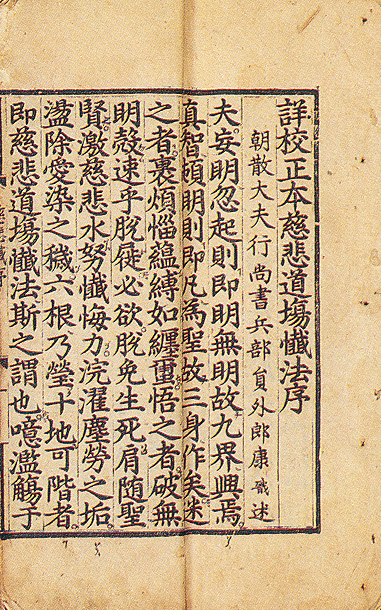 詳校正本慈悲道場懺法序
朝散大夫行尚書兵部員外郎康戩述
夫妄明忽起則即明無明故九界興焉
真智頓明則即凡為聖故三身作矣迷
之者裹煩惱蘊縛如纏璽悟之者破無
明殼速乎脫屣必欲脫免生死肩随聖
賢激慈悲水努懺悔力浣濯塵勞之垢
盪除愛染之穢六根乃瑩十地可階者
即慈悲道場懺法斯之謂也噫濫觴于